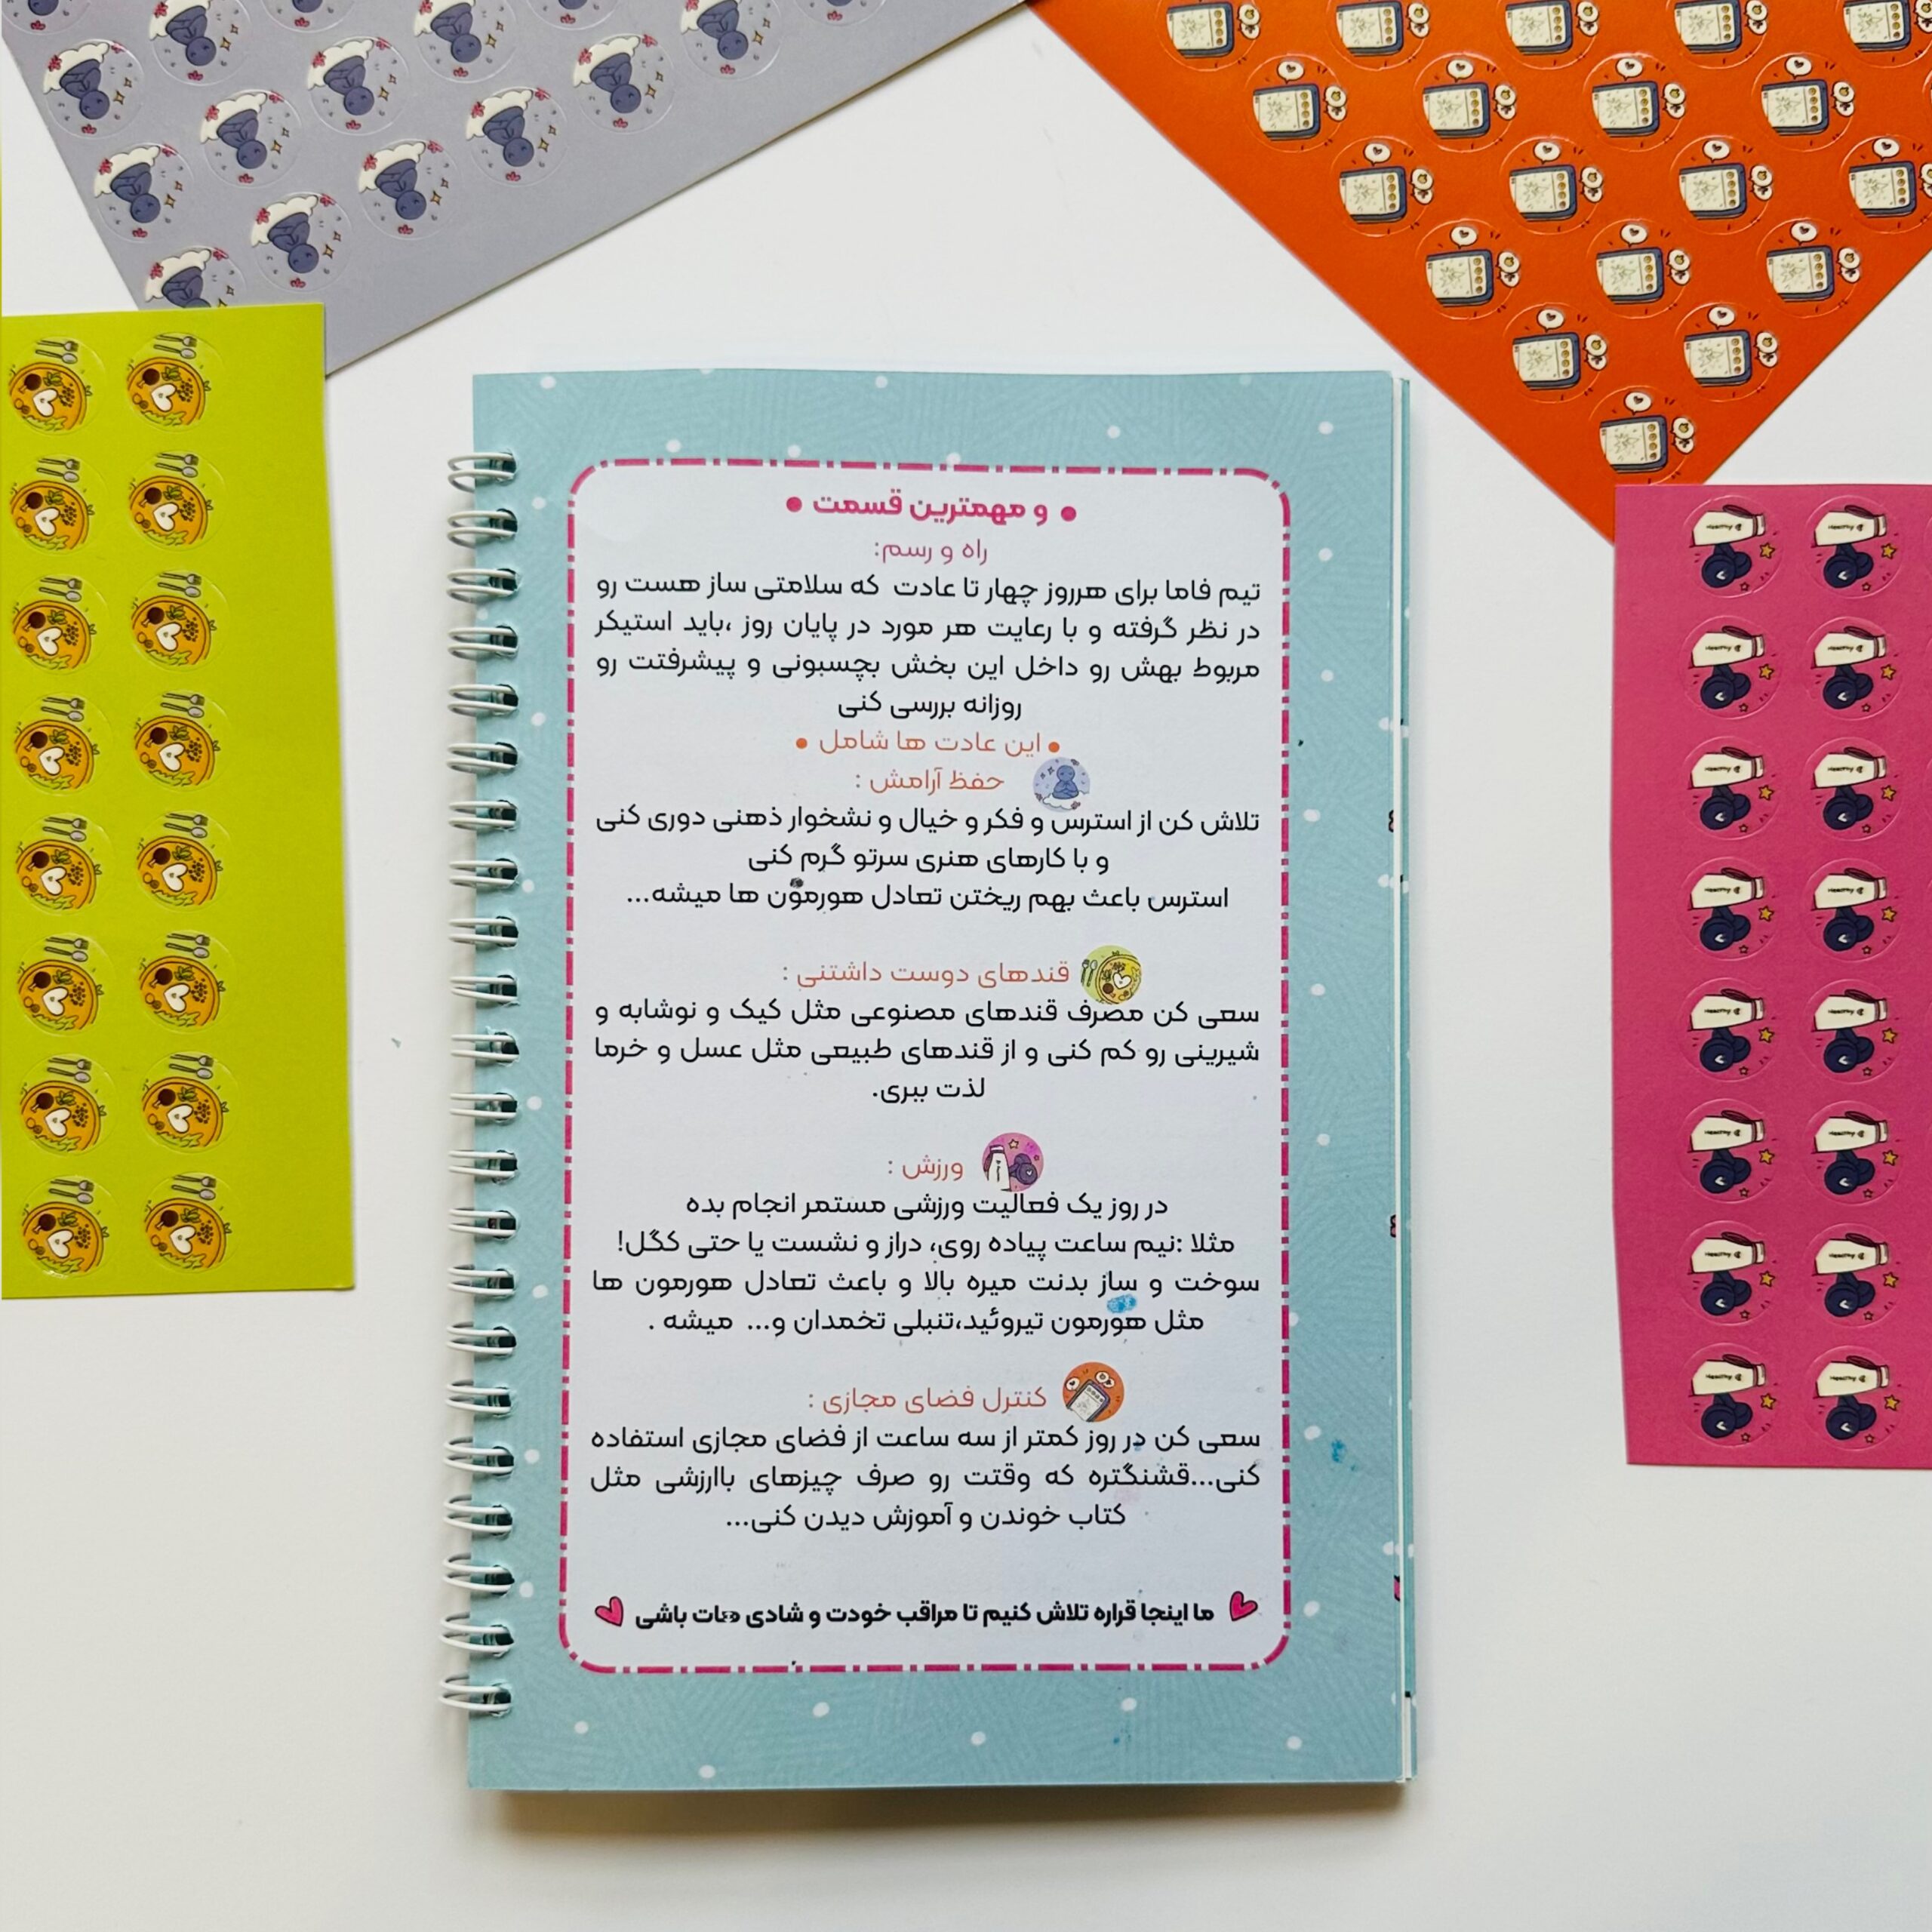 • و مهمترین قسمت •
راه و رسم:
تیم فاما برای هرروز چهار تا عادت که سلامتی ساز هست رو
در نظر گرفته و با رعایت هر مورد در پایان روز ،باید استیکر
مربوط بهش رو داخل این بخش بچسبونی و پیشرفتت رو
روزانه بررسی کنی
• این عادت ها شامل •
حفظ آرامش :
تلاش کن از استرس و فکر و خیال و نشخوار ذهنی دوری کنی
و با کارهای هنری سرتو گرم کنی
استرس باعث بهم ریختن تعادل هورمون ها میشه...
قندهای دوست داشتنی :
سعی کن مصرف قندهای مصنوعی مثل کیک و نوشابه و
شیرینی رو کم کنی و از قندهای طبیعی مثل عسل و خرما
لذت ببری.
ورزش :
در روز یک فعالیت ورزشی مستمر انجام بده
مثلا :نیم ساعت پیاده روی، دراز و نشست یا حتی کگل!
سوخت و ساز بدنت میره بالا و باعث تعادل هورمون ها
مثل هورمون تیروئید،تنبلی تخمدان و... میشه .
کنترل فضای مجازی :
سعی کن در روز کمتر از سه ساعت از فضای مجازی استفاده
کنی...قشنگتره که وقتت رو صرف چیزهای باارزشی مثل
کتاب خوندن و آموزش دیدن کنی...
ما اینجا قراره تلاش کنیم تا مراقب خودت و شادی هات باشی
Healthy